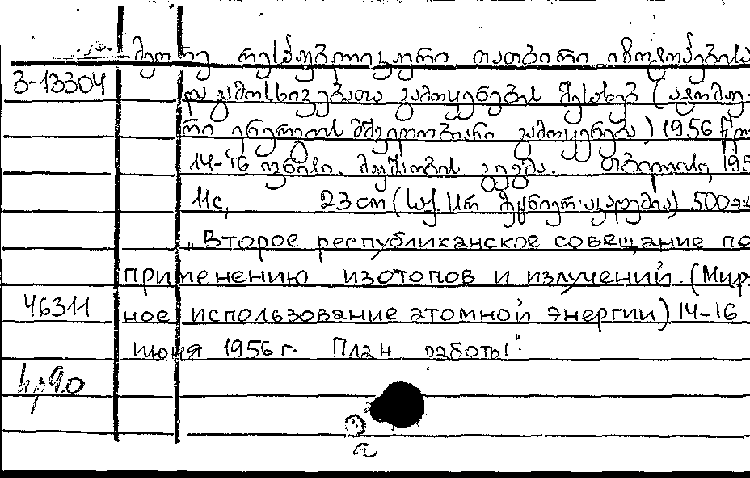 მეორე რესპუბლიკური თათბირი იზოტოპებისა
3-13304
და გამოსხივებათა გამოყენების შესახებ (ატომუ-
რი ენერგიის მშვიდობიანი გამოყენება) 1956 წლ
14-16 ივნისი. მუშაობის გეგმა. თბილისი, 195
11с, 23 cm (საქ. სსრ მეცნიერ. აკადემია) 500
„Второе республиканское совещание по
применению изотопов и излучений. (Мир-
46311
ное использование атомной энергии) 14-16
июня 1956 г. План работы“.